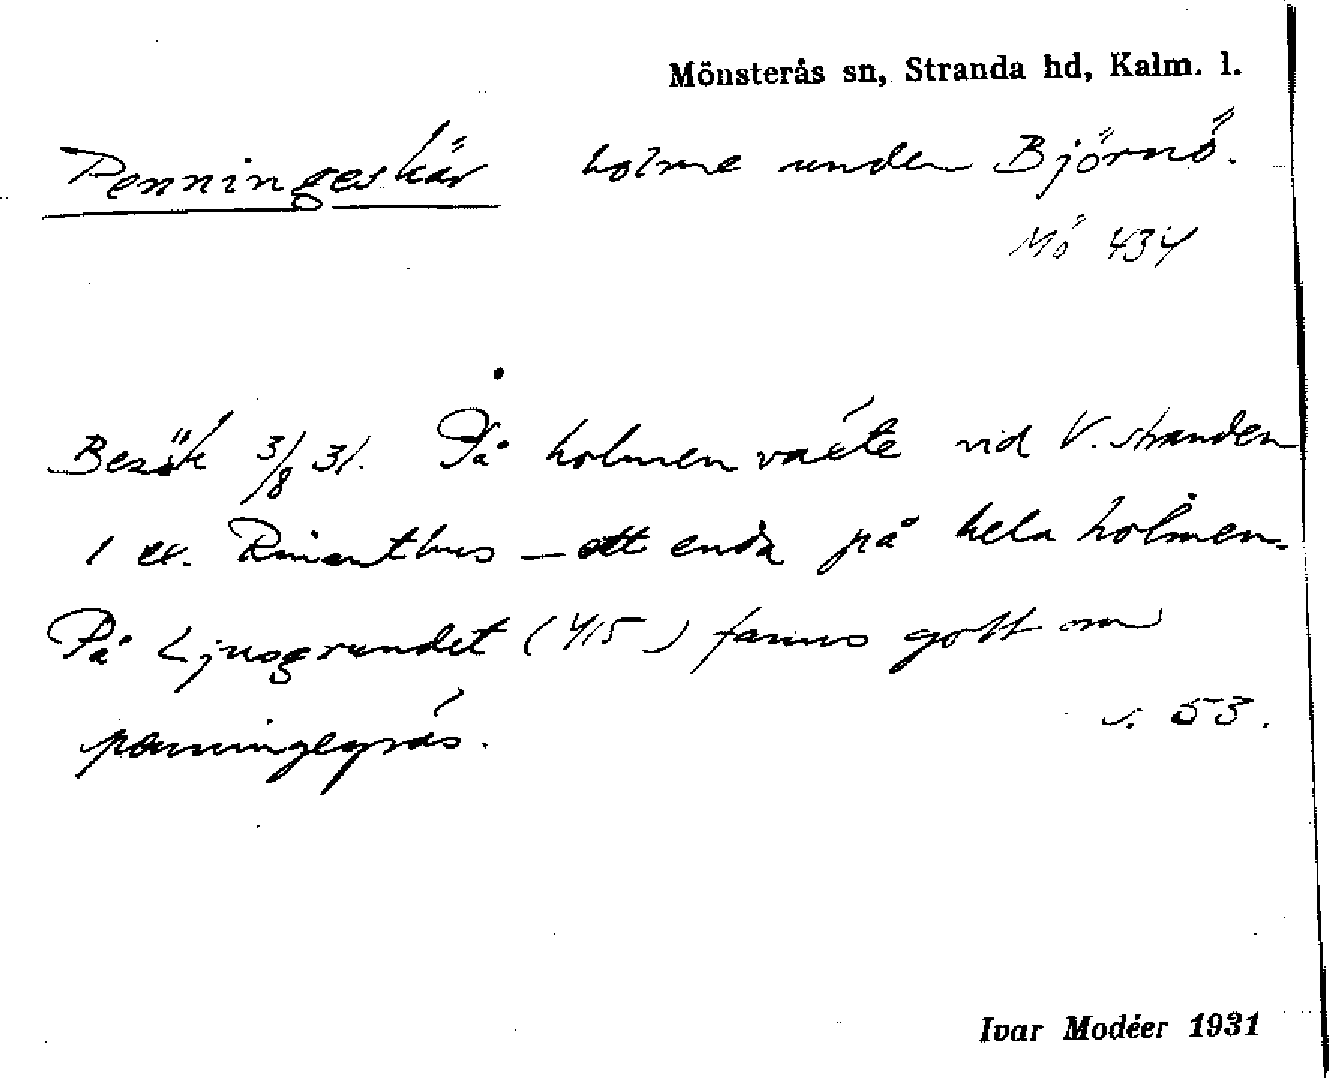 Mönsterås sn, Stranda hd, Kalm. l.
Penningeskär holme under Björnö.
Mö 434
Besök 3/8 31. På holmen växte vid V. stranden
1 ex. Rinanthus – ett enda på hela holmen.
På Ljusgrundet (415) fanns gott om
penningegräs.
s. 53.
Ivar Modéer 1931